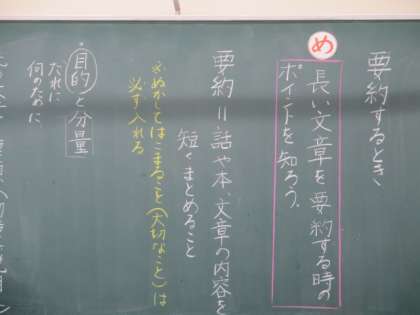 要約するとき、
め
長い文章を要約する時の
ポイントを知ろう。
要約＝話や本、文章の内容を
短くまとめること
※ぬかしてはこまること(大切なこと)は
必ず入れる
・目的と分量
だれに
何のために